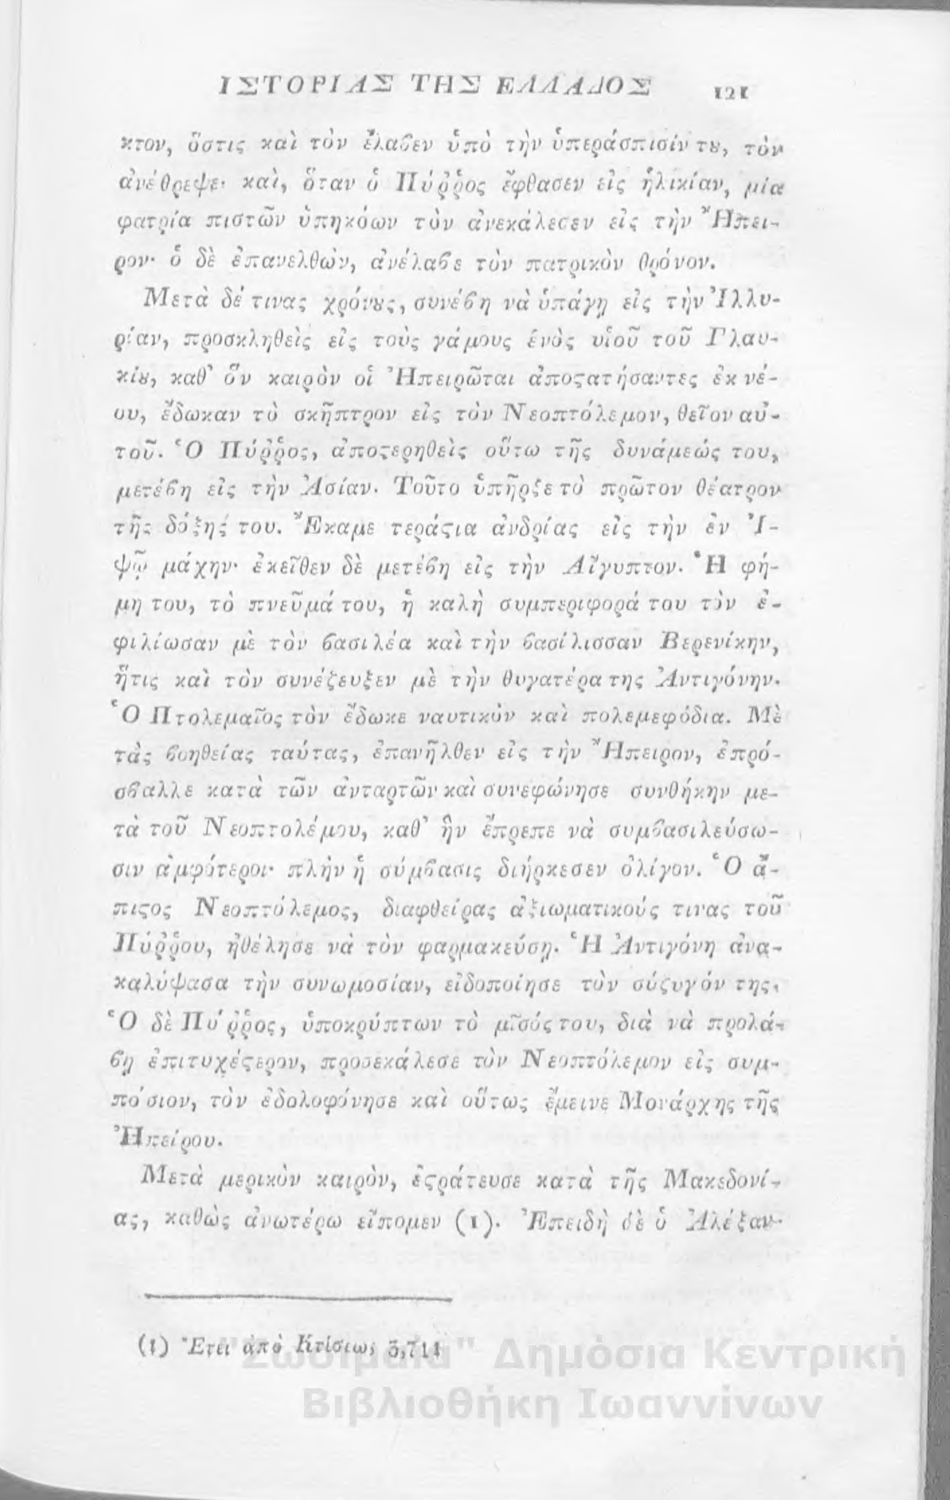 ΙΣΤΟΡΙΑΣ ΤΗΣ ΕΛΛΑΔΟΣ 121
κτον, ὅστις καὶ τὸν ἔλαϐεν ὑπὸ τὴν ὑπεράσπισίν τȣ, τὸν
ἀνέθρεψε· καὶ, ὅταν ὁ Πύῤῥος ἔφθασεν εἰς ἡλικίαν, μία
φατρία πιστῶν ὑπηκόων τὸν ἀνεκάλεσεν εἰς τὴν Ἤπει-
ρον· ὁ δὲ ἐπανελθὼν, ἀνέλαϐε τὸν πατρικὸν θρόνον.
Μετὰ δέ τινας χρόνȣς, συνέϐη νὰ ὑπάγῃ εἰς τὴν Ἰλλυ-
ρίαν, προσκληθεὶς εἰς τοὺς γάμους ἑνὸς υἱοῦ τοῦ Γλαυ-
κίȣ, καθ' ὃν καιρὸν οἱ Ἠπειρῶται ἀποϛατήσαντες ἐκ νέ-
ου, ἔδωκαν τὸ σκῆπτρον εἰς τὸν Νεοπτόλεμον, θεῖον αὐ-
τοῦ. Ὁ Πύῤῥος, ἀποϛερηθεὶς οὕτω τῆς δυνάμεώς του,
μετέϐη εἰς τὴν Ἀσίαν. Τοῦτο ὑπῆρξε τὸ πρῶτον θέατρον
τῆς δόξης του. Ἔκαμε τεράϛια ἀνδρίας εἰς τὴν ἐν Ἰ-
ψῷ μάχην· ἐκεῖθεν δὲ μετέϐη εἰς τὴν Αἴγυπτον. Ἡ φή-
μη του, τὸ πνεῦμά του, ἡ καλὴ συμπεριφορά του τὸν ἐ-
φιλίωσαν μὲ τὸν ϐασιλέα καὶ τὴν ϐασίλισσαν Βερενίκην,
ἥτις καὶ τὸν συνέζευξεν μὲ τὴν θυγατέρα της Ἀντιγόνην.
Ὁ Πτολεμαῖος τὸν ἔδωκε ναυτικὸν καὶ πολεμεφόδια. Μὲ
τὰς ϐοηθείας ταύτας, ἐπανῆλθεν εἰς τὴν Ἤπειρον, ἐπρό-
σϐαλλε κατὰ τῶν ἀνταρτῶν καὶ συνεφώνησε συνθήκην με-
τὰ τοῦ Νεοπτολέμου, καθ' ἣν ἔπρεπε νὰ συμϐασιλεύσω-
σιν ἀμφότεροι· πλὴν ἡ σύμϐασις διήρκεσεν ὀλίγον. Ὁ ἄ-
πιϛος Νεοπτόλεμος, διαφθείρας ἀξιωματικούς τινας τοῦ
Πύῤῥου, ἠθέλησε νὰ τὸν φαρμακεύσῃ. Ἡ Ἀντιγόνη ἀνα-
καλύψασα τὴν συνωμοσίαν, εἰδοποίησε τὸν σύζυγόν της.
Ὁ δὲ Πύῤῥος, ὑποκρύπτων τὸ μῖσός του, διὰ νὰ προλά-
ϐῃ ἐπιτυχέϛερον, προσεκάλεσε τὸν Νεοπτόλεμον εἰς συμ-
πόσιον, τὸν ἐδολοφόνησε καὶ οὕτως ἔμεινε Μονάρχης τῆς
Ἠπείρου.
Μετὰ μερικὸν καιρὸν, ἐϛράτευσε κατὰ τῆς Μακεδονί-
ας, καθὼς ἀνωτέρω εἴπομεν (1). Ἐπειδὴ δὲ ὁ Ἀλέξαν-
(1) Ἔτει ἀπὸ Κτίσεως 5,714
"Ζωσιμαία" Δημόσια Κεντρική
Βιβλιοθήκη Ιωαννίνων